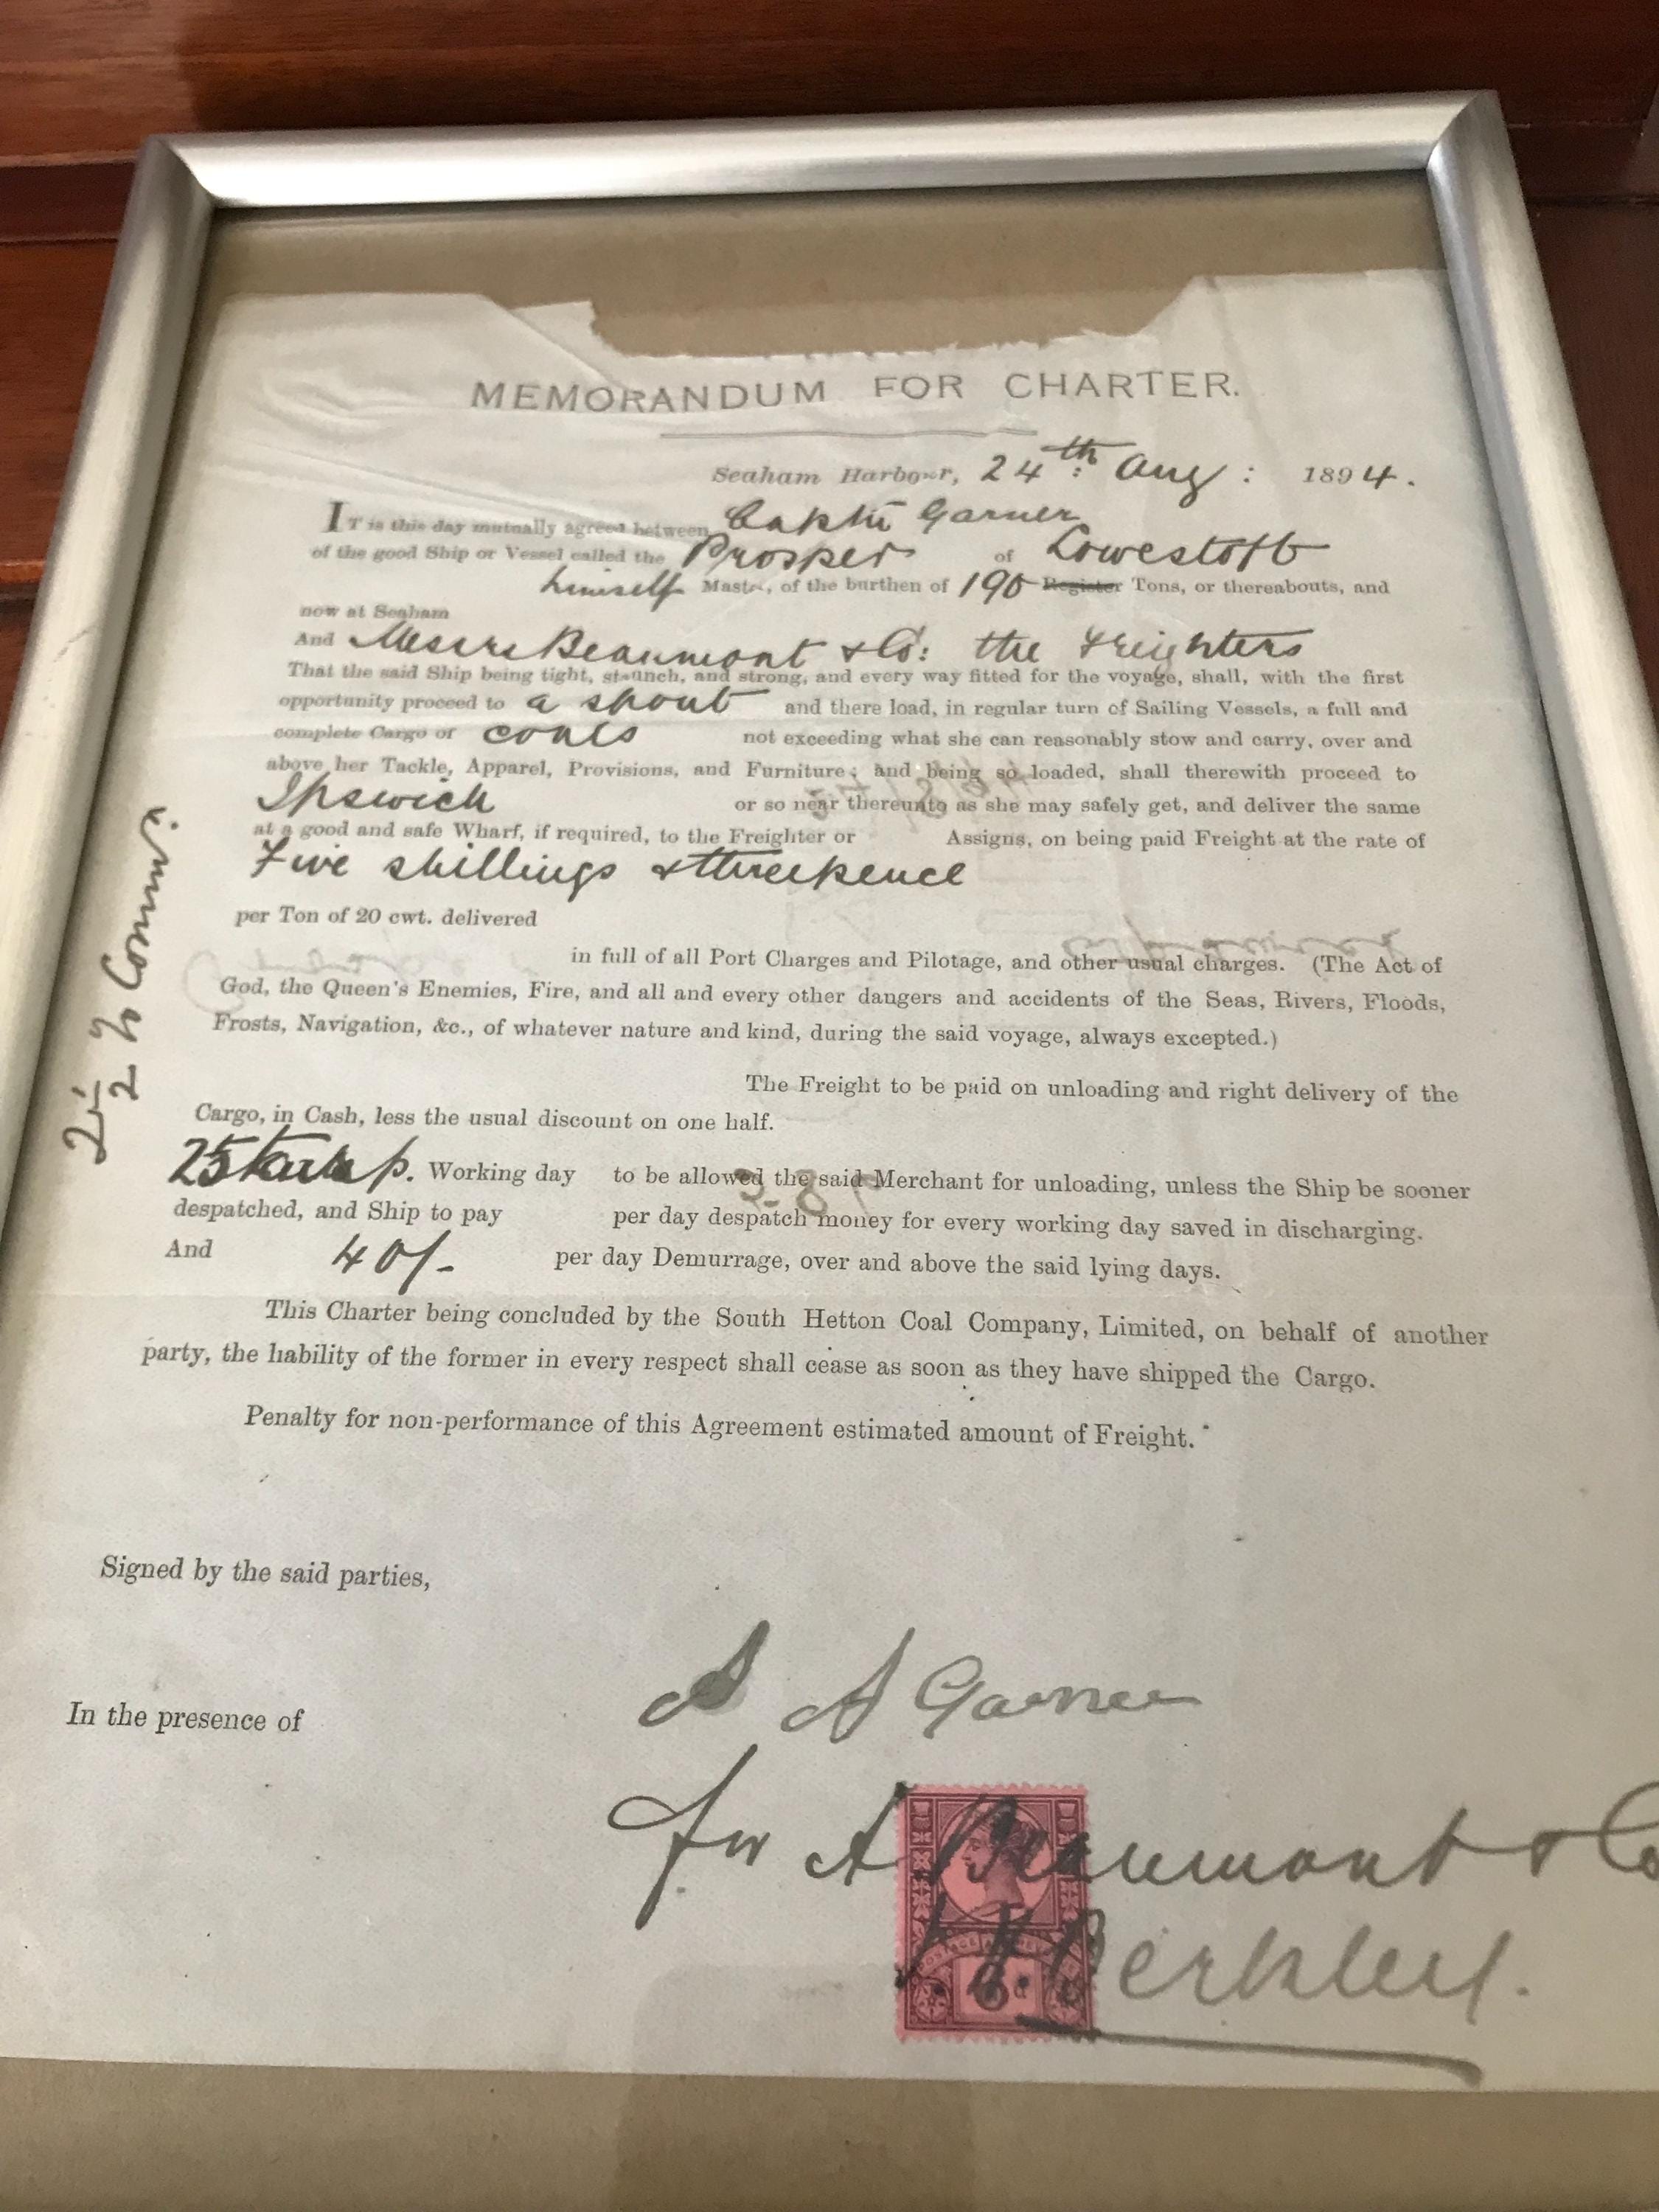 MEMORANDUM FOR CHARTER.
Seaham Harbour, 24th: Aug: 1894.
IT is this day mutually agreed between Captn Garner
of the good Ship or Vessel called the Prosper of Lowestoft
himself Master, of the burthen of 190 Register Tons, or thereabouts, and
now at Seaham
And Messrs Beaumont & Co: the Freighters
That the said Ship being tight, staunch, and strong, and every way fitted for the voyage, shall, with the first
opportunity proceed to a spout and there load, in regular turn of Sailing Vessels, a full and
complete Cargo of coals not exceeding what she can reasonably stow and carry, over and
above her Tackle, Apparel, Provisions, and Furniture; and being so loaded, shall therewith proceed to
Ipswich or so near thereunto as she may safely get, and deliver the same
at a good and safe Wharf, if required, to the Freighter or Assigns, on being paid Freight at the rate of
Five shillings & threepence
per Ton of 20 cwt. delivered
in full of all Port Charges and Pilotage, and other usual charges. (The Act of
God, the Queen's Enemies, Fire, and all and every other dangers and accidents of the Seas, Rivers, Floods,
Frosts, Navigation, &c., of whatever nature and kind, during the said voyage, always excepted.)
The Freight to be paid on unloading and right delivery of the
Cargo, in Cash, less the usual discount on one half.
25 tons p. Working day to be allowed the said Merchant for unloading, unless the Ship be sooner
despatched, and Ship to pay per day despatch money for every working day saved in discharging.
And 40/- per day Demurrage, over and above the said lying days.
This Charter being concluded by the South Hetton Coal Company, Limited, on behalf of another
party, the liability of the former in every respect shall cease as soon as they have shipped the Cargo.
Penalty for non-performance of this Agreement estimated amount of Freight.
2 1/2 % Commn.
Signed by the said parties,
A A Garner
In the presence of
for A Beaumont & Co
Berkley.
6d